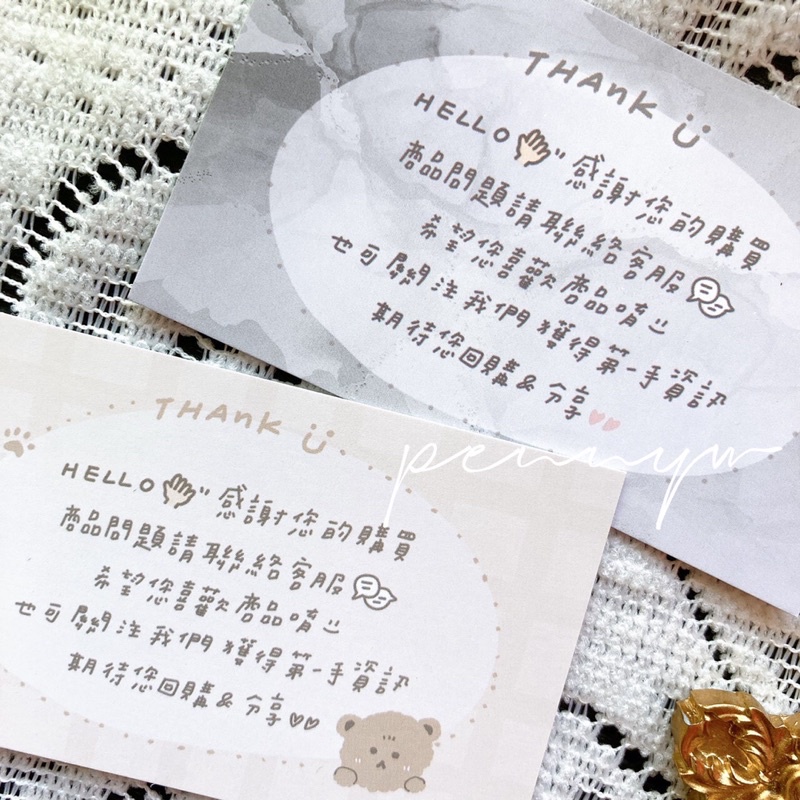 THANK
HELLO 感謝您的購買
商品問題請聯絡客服
希望您喜歡商品唷
也可關注我們獲得第一手資訊
期待您回購&分享
pennyw
THANK
HELLO 感謝您的購買
商品問題請聯絡客服
希望您喜歡商品唷
也可關注我們獲得第一手資訊
期待您回購&分享